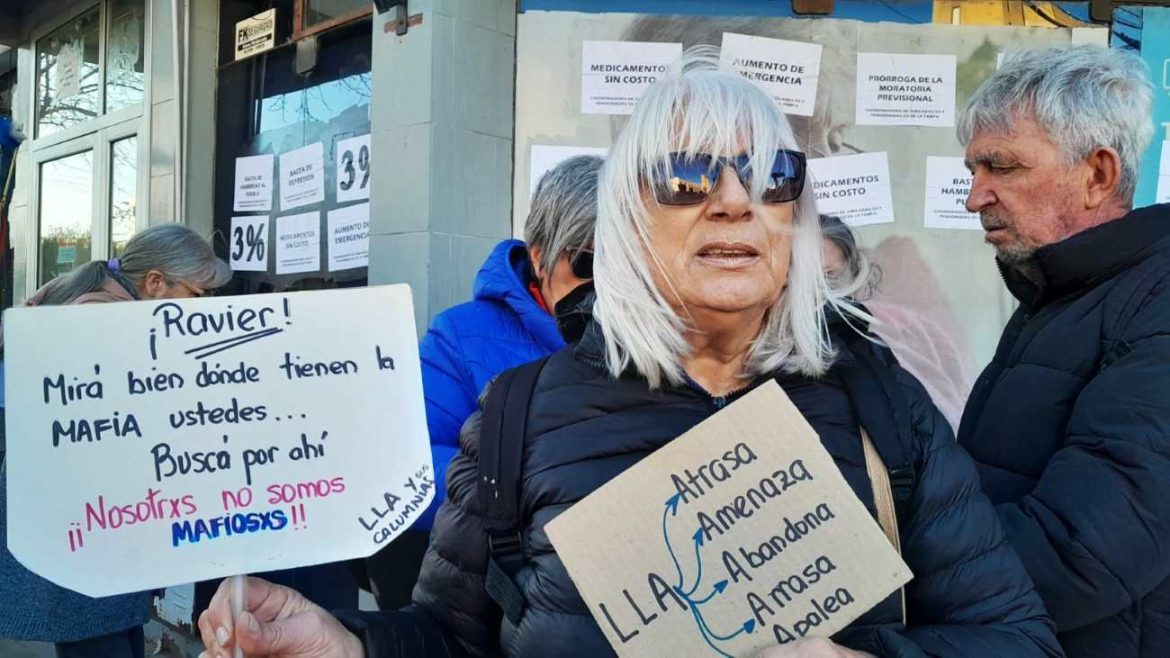 MEDICAMENTOS
SIN COSTO
AUMENTO DE
EMERGENCIA
PRÓRROGA DE LA
MORATORIA
PREVISIONAL
BASTA DE
HAMBREAR AL
PUEBLO
BASTA DE
REPRESIÓN
3%
3%
MEDICAMENTOS
SIN COSTO
AUMENTO DE
EMERGENCIA
MEDICAMENTOS
SIN COSTO
BASTA
HAMBRE
PUE
¡Ravier!
Mirá bien dónde tienen la
MAFIA ustedes...
Buscá por ahí
¡¡Nosotrxs no somos
MAFIOSXS!!
LLA Y SUS
CALUMNIAS
LLA
Atrasa
Amenaza
Abandona
Arrasa
Apalea